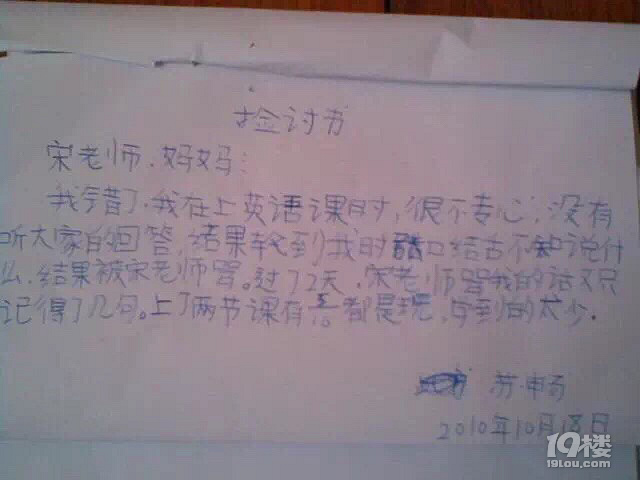 捡讨书
宋老师、妈妈:
我今昔了，我在上英语课时，很不专心，没有
听大家的回答，结果轮到我时 口结舌不知说什
么、结果被宋老师骂。过了2天，宋老师骂我的话又只
记得了几句。上了两节课有 都是玩，学到的太少。
苏畅
2010年10月18日
19楼
19lou.com